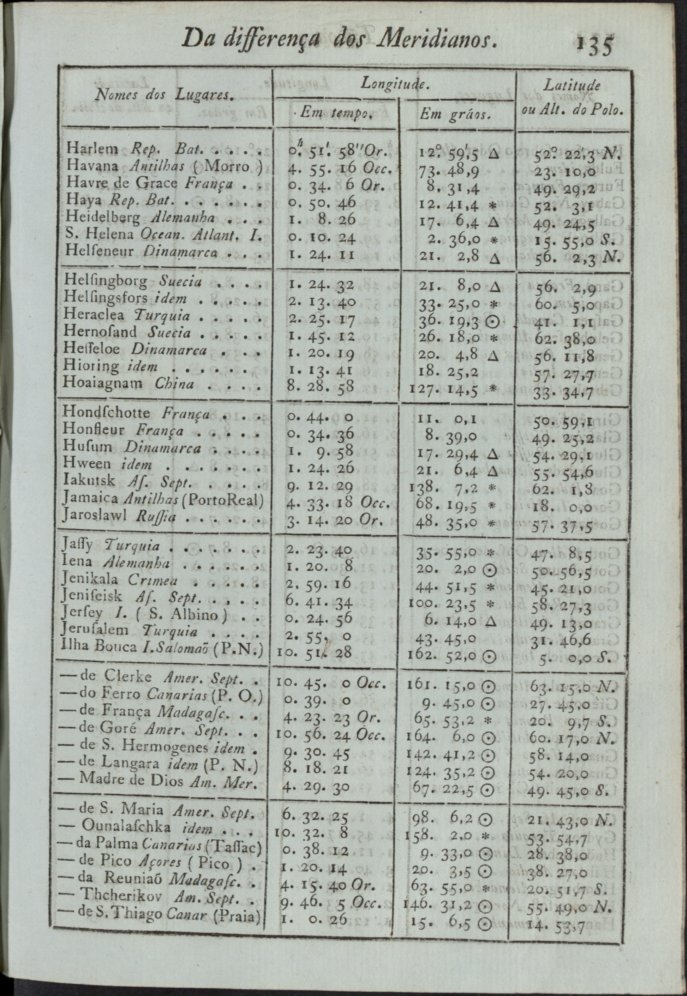 Da differença dos Meridianos. 135
Nomes dos Lugares. Longitude. Latitude
Em tempo. Em gráos. ou Alt. do Polo.
Harlem Rep. Bat. . . . . 0.h 51.' 58'' Or. 12.° 59,'5 Δ 52.° 22,'3 N.
Havana Antilhas ( Morro ) 4. 55. 16 Occ. 73. 48,9 23. 10,0
Havre de Grace França . . 0. 34. 6 Or. 8. 31,4 49. 29,2
Haya Rep. Bat. . . . . . 0. 50. 46 12. 41,4 * 52. 3,1
Heidelberg Alemanha . . . 1. 8. 26 17. 6,4 Δ 49. 24,5
S. Helena Ocean. Atlant. I. 0. 10. 24 2. 36,0 * 15. 55,0 S.
Helseneur Dinamarca . . . 1. 24. 11 21. 2,8 Δ 56. 2,3 N.
Helsingborg Suecia . . . . 1. 24. 32 21. 8,0 Δ 56. 2,9
Helsingsfors idem . . . . . 2. 13. 40 33. 25,0 * 60. 5,0
Heraclea Turquia . . . . . 2. 25. 17 36. 19,3 ⊙ 41. 1,1
Hernosand Suecia . . . . . 1. 45. 12 26. 18,0 * 62. 38,0
Hesseloe Dinamarca . . . 1. 20. 19 20. 4,8 Δ 56. 11,8
Hioring idem . . . . . . 1. 13. 41 18. 25,2 57. 27,7
Hoaiagnam China . . . . 8. 28. 58 127. 14,5 * 33. 34,7
Hondschotte França . . . 0. 44. 0 11. 0,1 50. 59,1
Honfleur França . . . . . 0. 34. 36 8. 39,0 49. 25,2
Husum Dinamarca . . . . 1. 9. 58 17. 29,4 Δ 54. 29,1
Hween idem . . . . . . . 1. 24. 26 21. 6,4 Δ 55. 54,6
Iakutsk As. Sept. . . . . . 9. 12. 29 138. 7,2 * 62. 1,8
Jamaica Antilhas (PortoReal) 4. 33. 18 Occ. 68. 19,5 * 18. 0,0
Jaroslawl Russia . . . . . . 3. 14. 20 Or. 48. 35,0 * 57. 37,5
Jassy Turquia . . . . . . 2. 23. 40 35. 55,0 * 47. 8,5
Iena Alemanha . . . . . 1. 20. 8 20. 2,0 ⊙ 50. 56,5
Jenikala Crimea . . . . . 2. 59. 16 44. 51,5 * 45. 21,0
Jeniseisk As. Sept. . . . . 6. 41. 34 100. 23,5 * 58. 27,3
Jersey I. ( S. Albino ) . . 0. 24. 56 6. 14,0 Δ 49. 13,0
Jerusalem Turquia . . . . 2. 55. 0 43. 45,0 31. 46,6
Ilha Bouca I.Salomaõ (P.N.) 10. 51. 28 162. 52,0 ⊙ 5. 0,0 S.
— de Clerke Amer. Sept. . 10. 45. 0 Occ. 161. 15,0 ⊙ 63. 15,0 N.
— do Ferro Canarias (P. O.) 0. 39. 0 9. 45,0 ⊙ 27. 45,0
— de França Madagasc. . . 4. 23. 23 Or. 65. 53,2 * 20. 9,7 S.
— de Goré Amer. Sept. . . 10. 56. 24 Occ. 164. 6,0 ⊙ 60. 17,0 N.
— de S. Hermogenes idem . 9. 30. 45 142. 41,2 ⊙ 58. 14,0
— de Langara idem (P. N.) 8. 18. 21 124. 35,2 ⊙ 54. 20,0
— Madre de Dios Am. Mer. 4. 29. 30 67. 22,5 ⊙ 49. 45,0 S.
— de S. Maria Amer. Sept. 6. 32. 25 98. 6,2 ⊙ 21. 43,0 N.
— Ounalaschka idem . . . 10. 32. 8 158. 2,0 * 53. 54,7
— da Palma Canarias (Tassac) 0. 38. 12 9. 33,0 ⊙ 28. 38,0
— de Pico Açores ( Pico ) . 1. 20. 14 20. 3,5 ⊙ 38. 27,0
— da Reuniaõ Madagasc. . 4. 15. 40 Or. 63. 55,0 * 20. 51,7 S.
— Thcherikov Am. Sept. . 9. 46. 5 Occ. 146. 31,2 ⊙ 55. 49,0 N.
— de S. Thiago Canar (Praia) 1. 0. 26 15. 6,5 ⊙ 14. 53,7